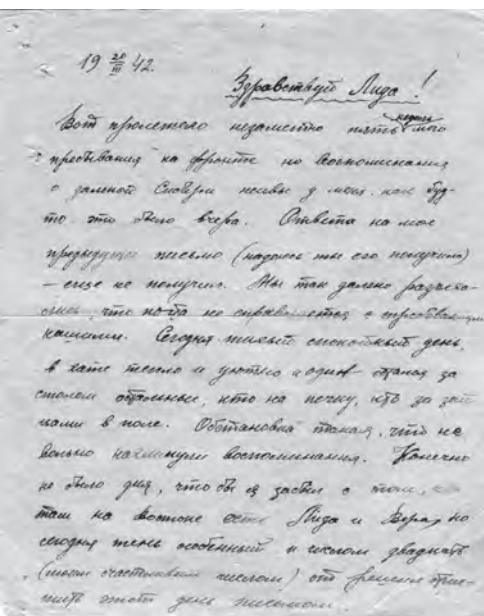 19 20/III 42.
Здравствуй Лида!
Вот пролетело незаметно пять недель моего
пребывания на фронте но воспоминания
о далекой Сибири живы у меня как буд-
то это было вчера. Ответа на мое
предыдущее письмо (надеюсь ты его получила)
– еще не получил. Мы так далеко
что почта не справляется с требованиями
нашими. Сегодня тихий спокойный день,
в хате тепло и уютно я один за
столом остальные, кто на печку, кто за зай-
цами в поле. Обстановка такая, что не
вольно нахлынули воспоминания. Конечно
не было дня, что бы я забыл о том, что
там на востоке есть Лида и Вера, но
сегодня день особенный и числом двадцать
(моим счастливым числом) отме-
тить этот день письмом